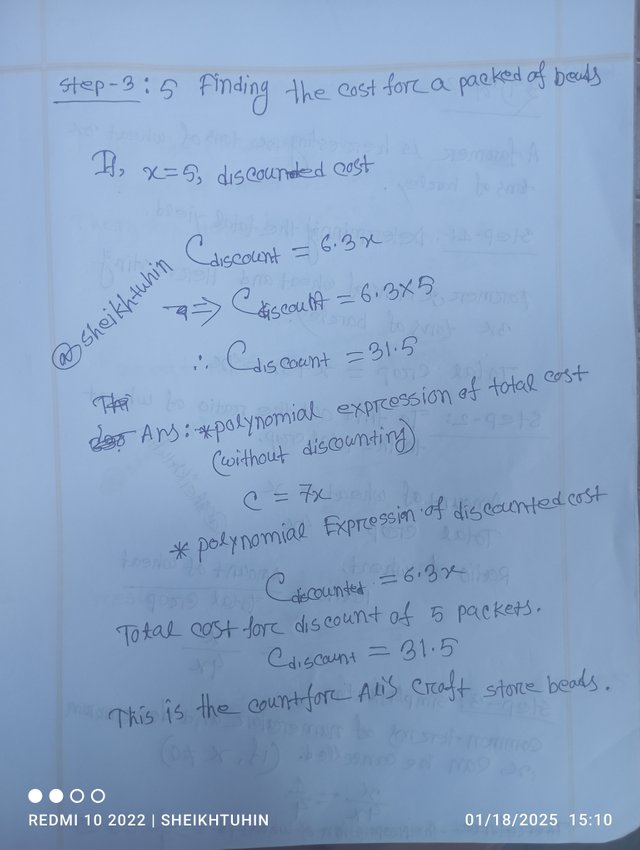 step-3: 5 Finding the cost forc a packed of beads
If, x=5, discounded cost
Cdiscount = 6.3x
=> Cdiscount = 6.3×5
∴ Cdiscount = 31.5
@sheikhtuhin
Ans: *polynomial expression of total cost
(without discounting)
C = 7x
* polynomial Expression of discounted cost
Cdiscounted = 6.3x
Total cost forc discount of 5 packets.
Cdiscount = 31.5
This is the countforc Ali's Craft store beads.
REDMI 10 2022 | SHEIKHTUHIN
01/18/2025 15:10